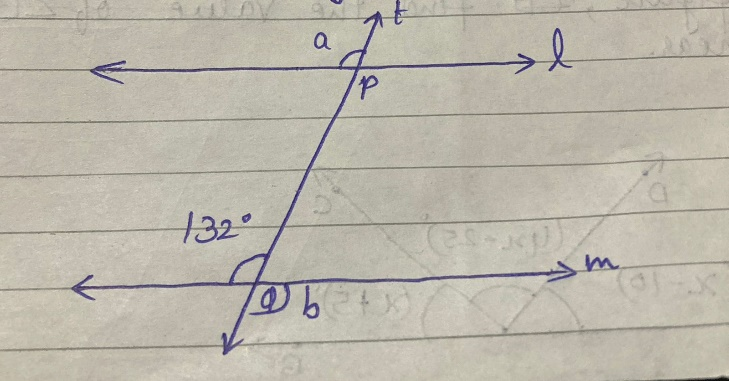 t
a
l
P
132°
m
Q b